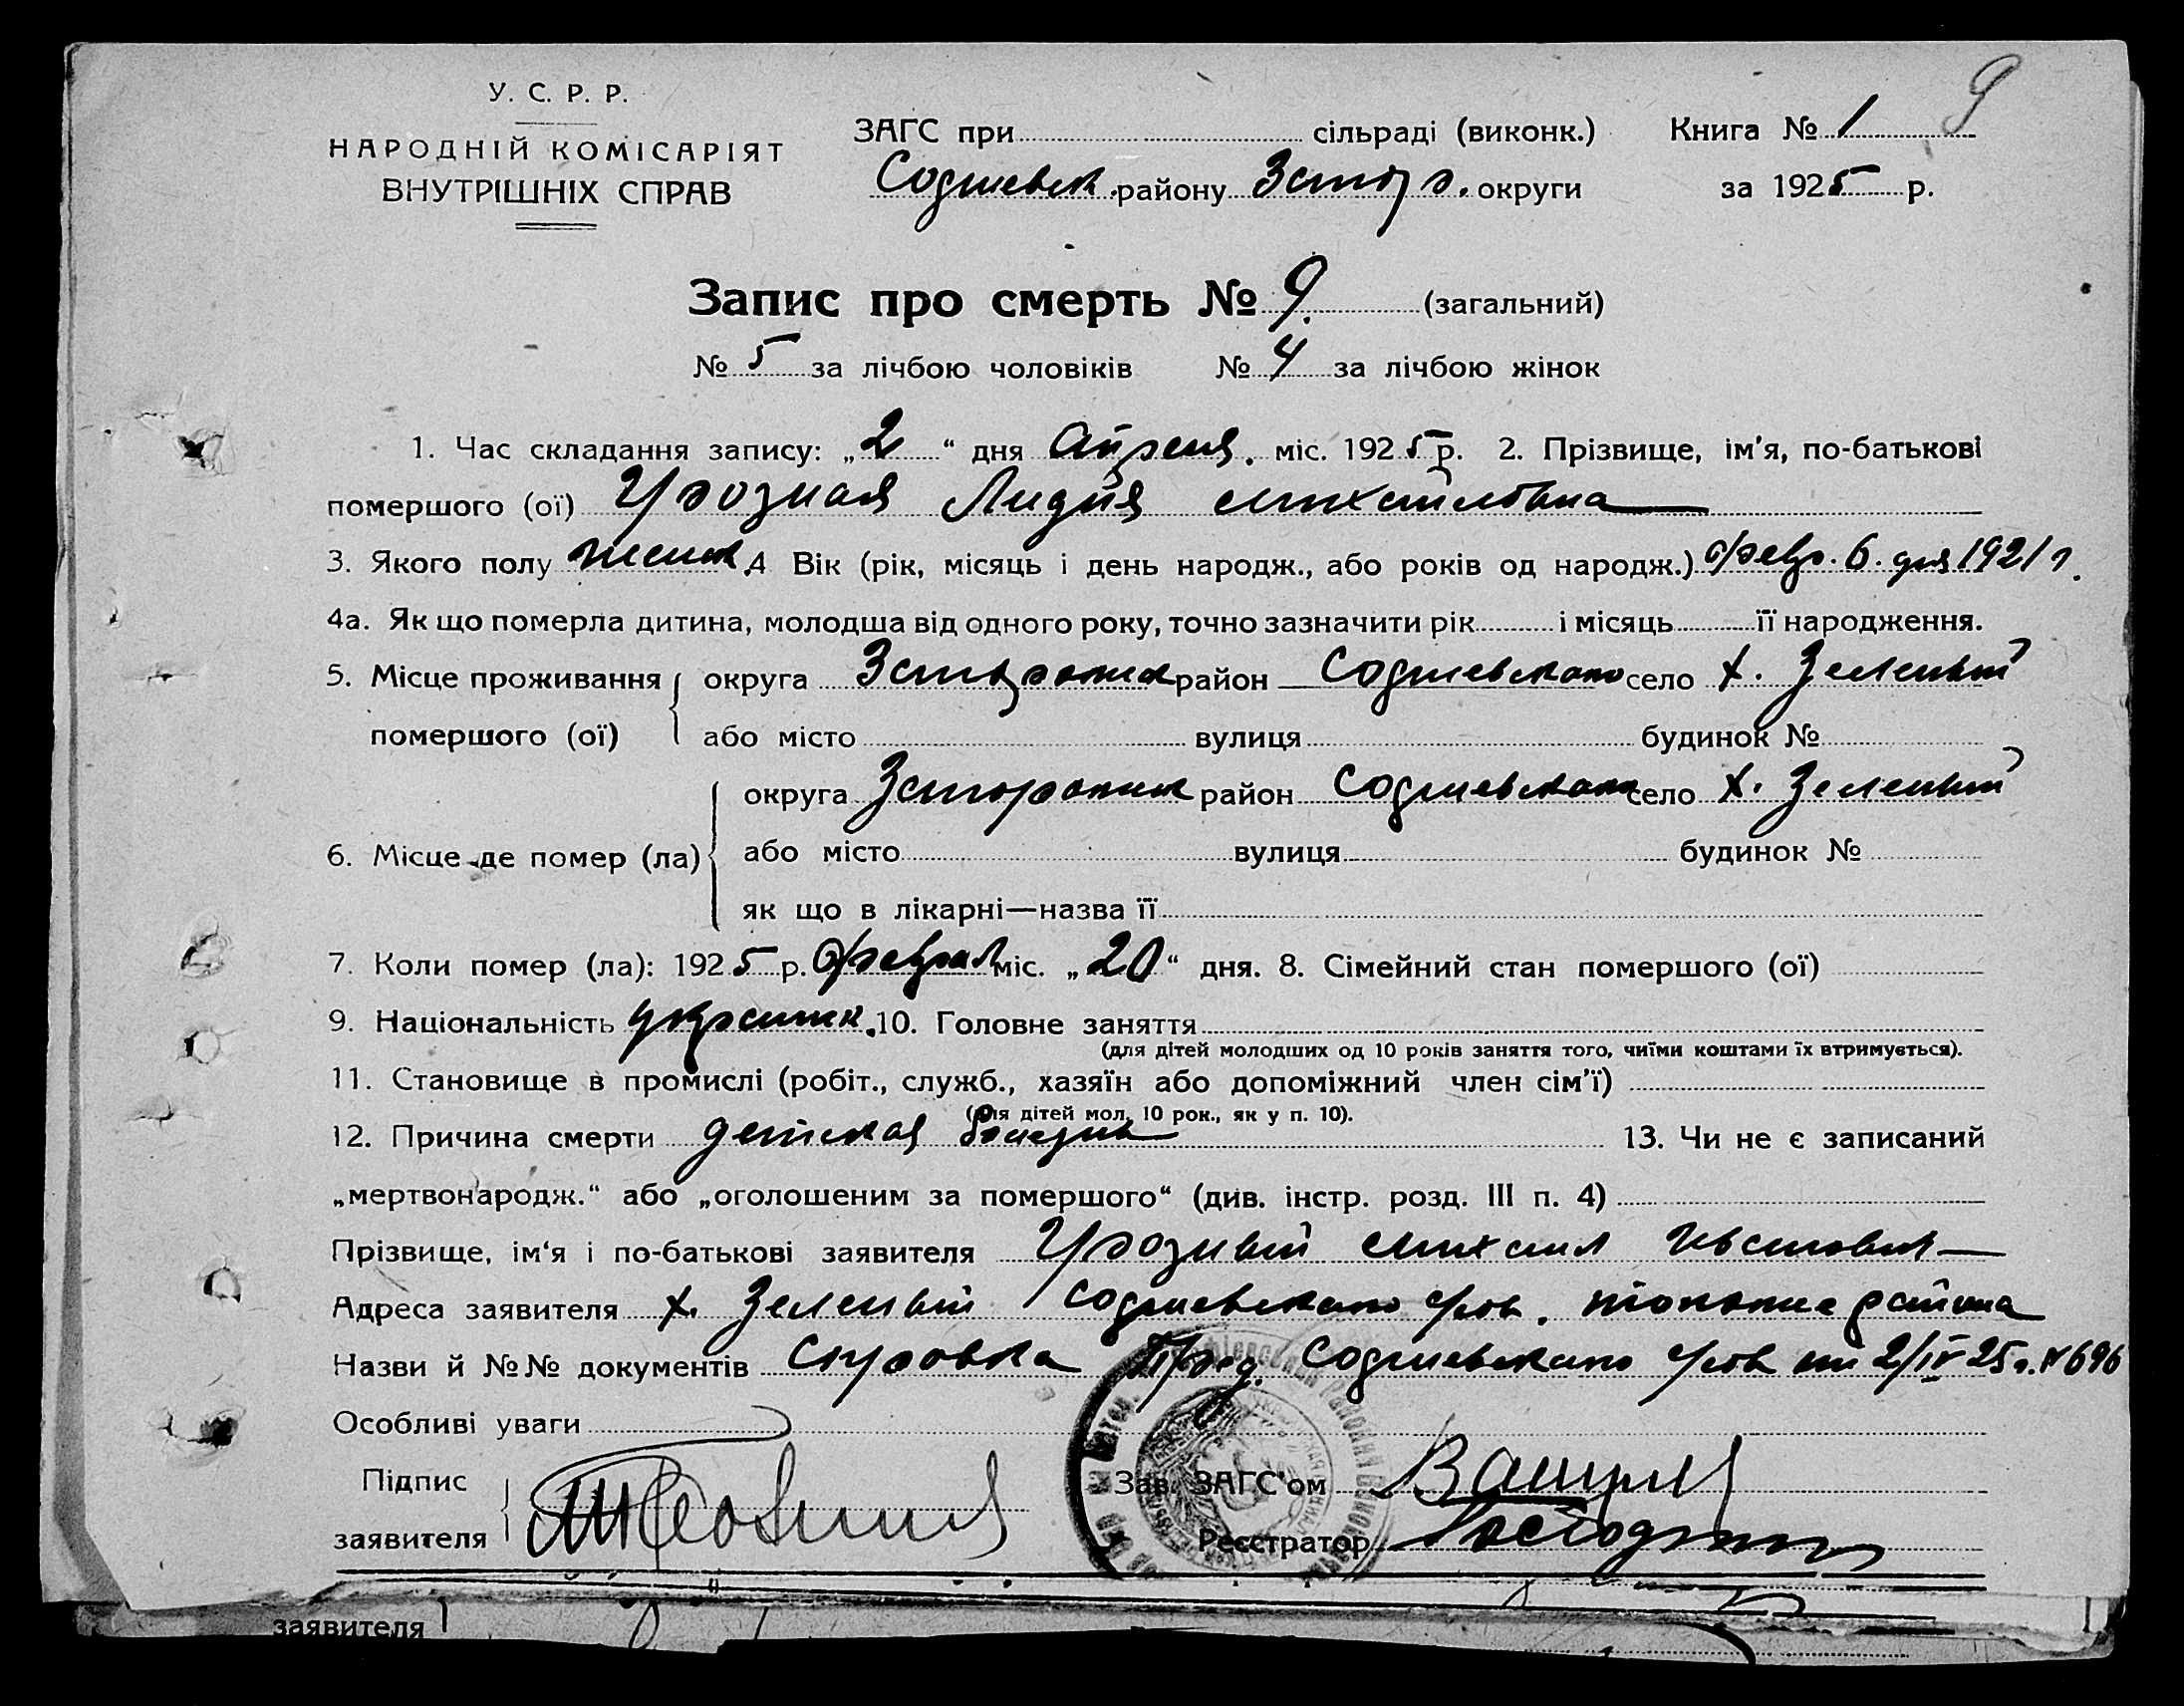 У. С. Р. Р.
НАРОДНІЙ КОМІСАРІЯТ
ВНУТРІШНІХ СПРАВ
ЗАГС при сільраді (виконк.) Книга № 1 9
району округи за 1925 р.
Запис про смерть № 9. (загальний)
№ 5 за лічбою чоловіків № 4 за лічбою жінок
1. Час складання запису: „2“ дня Апреля. міс. 1925 р. 2. Прізвище, ім'я, по-батькові
помершого (ої) Грозная Лидия Михайловна
3. Якого полу женск. 4 Вік (рік, місяць і день народж., або років од народж.) февр. 6. дня 1921 г.
4а. Як що померла дитина, молодша від одного року, точно зазначити рік і місяць її народження.
5. Місце проживання округа район село х. Зеленый
помершого (ої) або місто вулиця будинок №
округа район село х. Зеленый
6. Місце де помер (ла) або місто вулиця будинок №
як що в лікарні—назва її
7. Коли помер (ла): 1925 р. Феврал міс. „20“ дня. 8. Сімейний стан помершого (ої)
9. Національність украинк. 10. Головне заняття
(для дітей молодших од 10 років заняття того, чиїми коштами їх втримується).
11. Становище в промислі (робіт., служб., хазяїн або допоміжний член сім'ї)
(для дітей мол. 10 рок., як у п. 10).
12. Причина смерти детская болезнь 13. Чи не є записаний
„мертвонародж.“ або „оголошеним за помершого“ (див. інстр. розд. III п. 4)
Прізвище, ім'я і по-батькові заявителя Грозный Михаил Иванович
Адреса заявителя х. Зеленый района
Назви й №№ документів Справка Пред. 2/IV 25 г. № 696
Особливі уваги
Підпис Зав. ЗАГС'ом
заявителя Реєстратор
заявителя